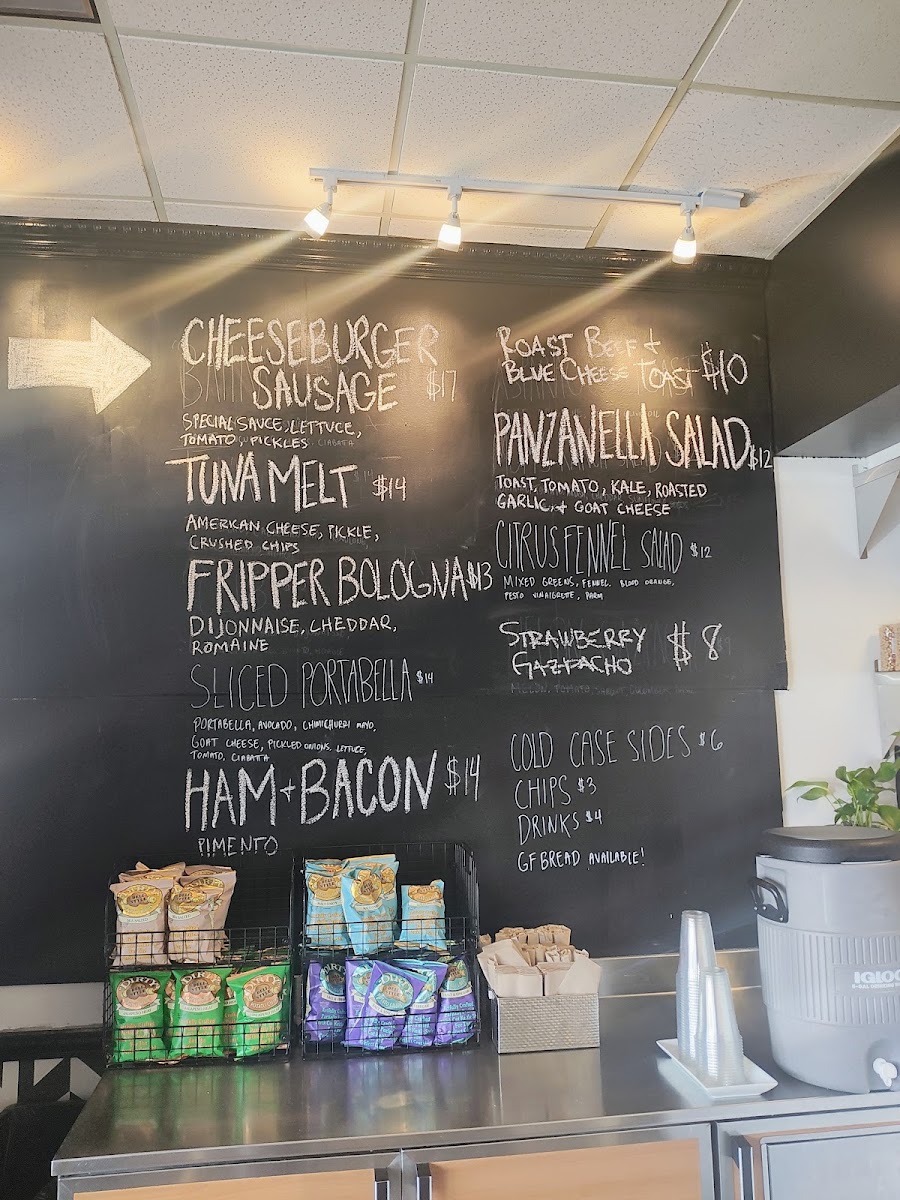 CHEESEBURGER
SAUSAGE $17
SPECIAL SAUCE, LETTUCE,
TOMATO, PICKLES
TUNA MELT $14
AMERICAN CHEESE, PICKLE,
CRUSHED CHIPS
FRIPPER BOLOGNA $13
DIJONNAISE, CHEDDAR,
ROMAINE
SLICED PORTABELLA $14
PORTABELLA, AVOCADO, CHIMICHURRI MAYO,
GOAT CHEESE, PICKLED ONIONS, LETTUCE,
TOMATO, CIABATTA
HAM + BACON $14
PIMENTO
ROAST BEEF +
BLUE CHEESE TOAST $10
PANZANELLA SALAD $12
TOAST, TOMATO, KALE, ROASTED
GARLIC, + GOAT CHEESE
CITRUS FENNEL SALAD $12
MIXED GREENS, FENNEL, BLOOD ORANGE,
PESTO VINAIGRETTE, PARM
STRAWBERRY
GAZPACHO $8
COLD CASE SIDES $6
CHIPS $3
DRINKS $4
GF BREAD AVAILABLE!
DIRTY
IGLOO